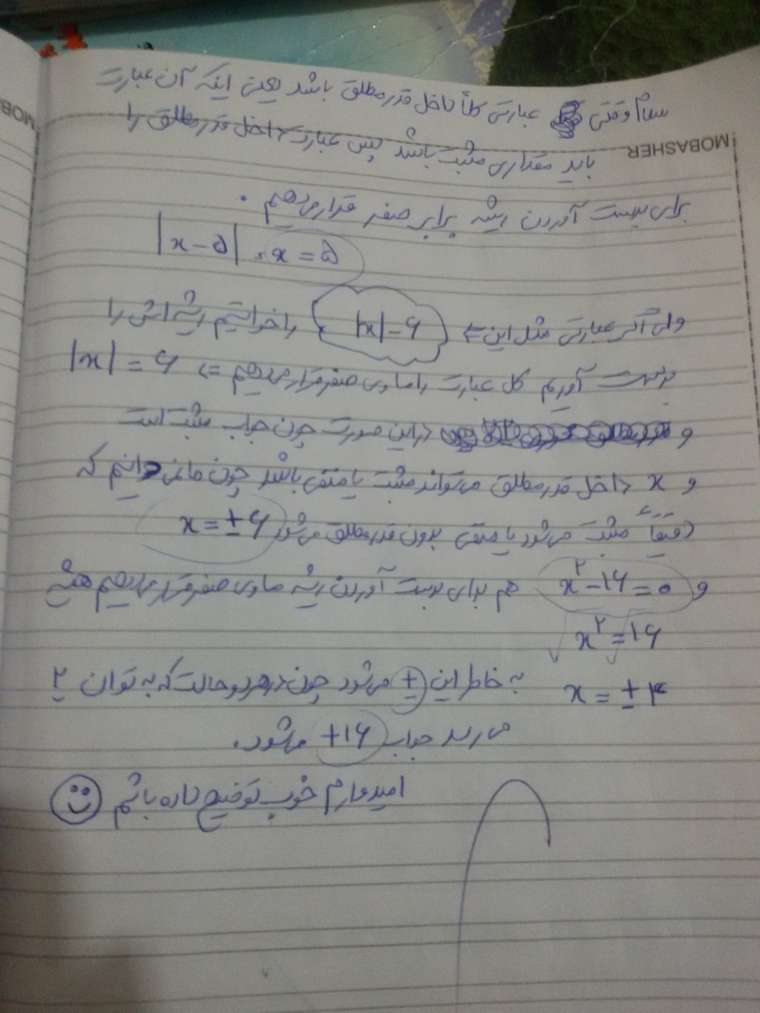 سلام وقتی عبارتی کلاً داخل قدرمطلق باشد یعنی اینکه آن عبارت
MOBASHER
باید مقداری مثبت باشد پس عبارت داخل قدرمطلق را
برای بدست آوردن ریشه برابر صفر قرار می‌دهیم .
|x-۵| , x=۵
ولی اگر عبارتی مثل این |x|-۶ را خواستیم ریشه‌اش را
بدست آوریم کل عبارت را مساوی صفر قرار می‌دهیم => |x|=۶
و در این صورت چون جواب مثبت است
و x داخل قدرمطلق می‌تواند مثبت یا منفی باشد چون ما نمی دانیم که
دقیقاً مثبت می‌شود یا منفی بدون قدرمطلق می‌شود x=±۶
و x²-۱۶=۰ هم برای بدست آوردن ریشه مساوی صفر قرار می‌دهیم همیشه
x²=۱۶
x=±۴ به خاطر این ± می‌شود چون در هر دو حالت که به توان ۲
می‌رسد جواب +۱۶ می‌شود.
امیدوارم خوب توضیح داده باشم